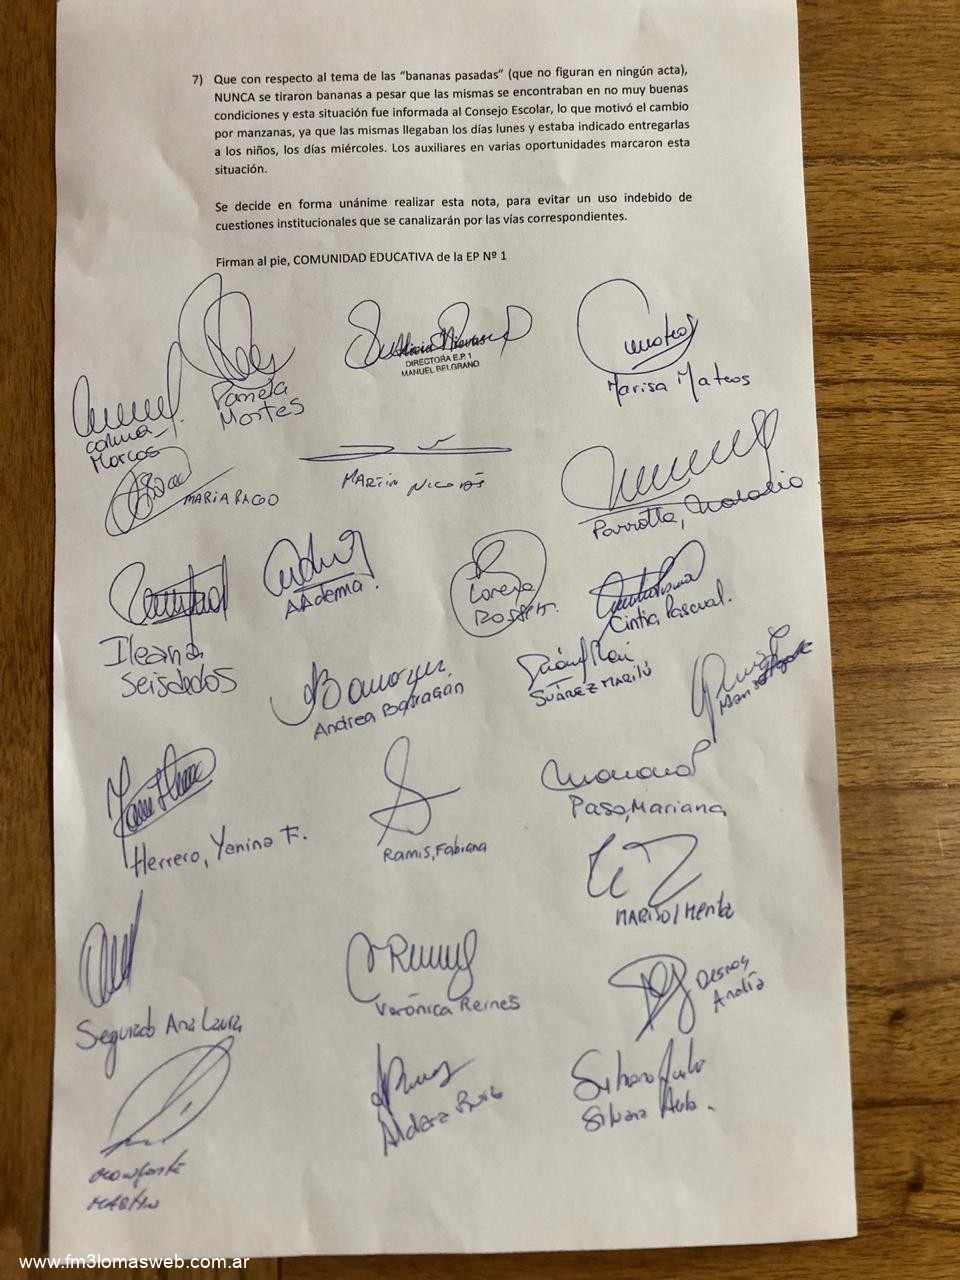 7) Que con respecto al tema de las “bananas pasadas” (que no figuran en ningún acta),
NUNCA se tiraron bananas a pesar que las mismas se encontraban en no muy buenas
condiciones y esta situación fue informada al Consejo Escolar, lo que motivó el cambio
por manzanas, ya que las mismas llegaban los días lunes y estaba indicado entregarlas
a los niños, los días miércoles. Los auxiliares en varias oportunidades marcaron esta
situación.
Se decide en forma unánime realizar esta nota, para evitar un uso indebido de
cuestiones institucionales que se canalizarán por las vías correspondientes.
Firman al pie, COMUNIDAD EDUCATIVA de la EP Nº 1
Pamela
Montes
DIRECTORA E.P. 1
MANUEL BELGRANO
Marisa Mateos
Marcos
MARIA RAGO
MARTIN NICOLÁS
Parrotta,
Ileana
Seisdedos
AAdema.
Lorena
Cintia Pascual.
Andrea Barragán
SUÁREZ MARILÚ
Herrero, Yanina F.
Ramis, Fabiana
Paso, Mariana
MARISOL Menta
Segurado Ana Laura
Verónica Reines
Analía
Aldana
Silvana
MARTIN
www.fm3lomasweb.com.ar